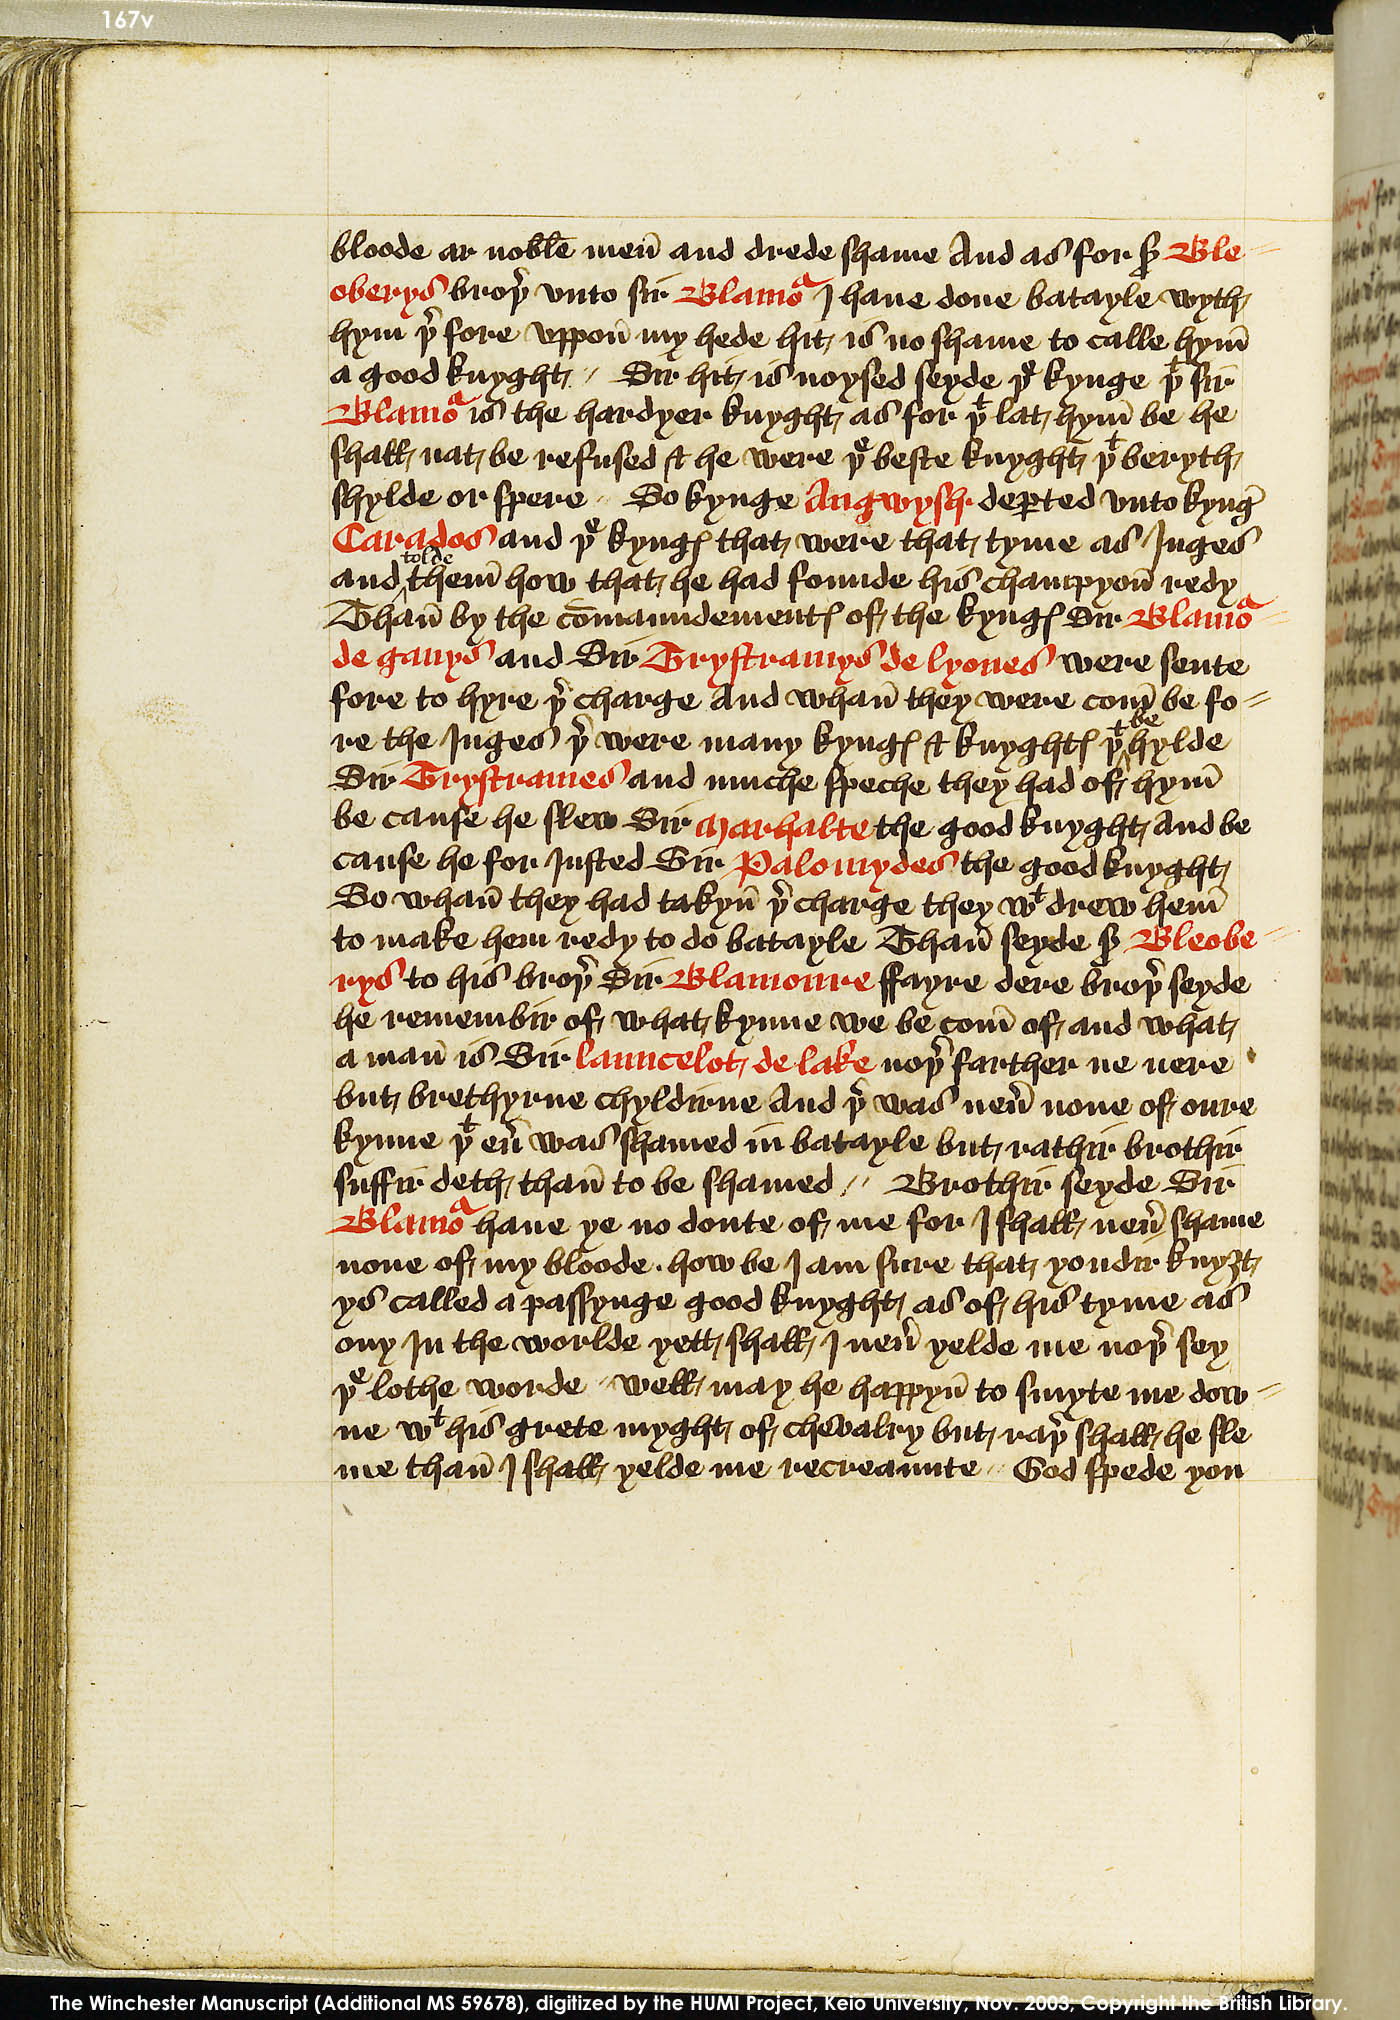 167v
bloode ar noble men̄ and drede shame And as for sͬ Ble=
oberys broþͬ vnto sir Blamoͬ I haue done batayle wyth
hym þͬ fore vppon̄ my hede hit is no shame to calle hym̄
a good knyght // Sir hit is noysed seyde þͤ kynge þͭ sir
Blamoͬ is the hardyer knyght as for þͭ lat hym̄ be he
shall nat be refused & he were þͤ beste knyght þͭ beryth
shylde or spere // So kynge Angwysh deꝑted vnto kynḡ
Carados and þͤ kyngꝭ that were that tyme as Juges
and ‸tolde them̄ how that he had founde his champyon̄ redy
Than̄ by the com̄aundementꝭ of the kyngꝭ Sir Blamoͬ=
de ganys and Sir Trystramys de lyones were sente
fore to hyre þͬ charge And whan̄ they were com̄ be fo=
re the Juges þͬ were many kyngꝭ & knyghtꝭ þͭ ‸be hylde
Sir Trystrames and muche speche they had of hym̄
be cause he slew Sir Marhalte the good knyght And be
cause he for Justed Sir Palomydes the good knyght
So whan̄ they had takyn̄ þͬ charge they wͭ drew hem̄
to make hem redy to do batayle Than̄ seyde sͬ Bleobe=
rys to his broþͬ Sir Blamoure ffayre dere broþͬ seyde
he remembir of what kynne we be com̄ of and what
a man̄ is Sir launcelot de lake noþͬ farther ne nere
but brethyrne chyldirne And þͬ was neuͬ none of oure
kynne þͭ euͬ was shamed in batayle but rathir brothir
suffir deth than̄ to be shamed // Brothir seyde Sir
Blamoͬ haue ye no doute of me for I shall neuͬ shame
none of my bloode . how be I am sure that yondir knyȝt
ys called a passynge good knyght as of his tyme as
ony In the worlde yett shall I neuͬ yelde me noþͬ sey
þͤ lothe worde // well may he happyn̄ to smyte me dow=
ne wͭ his grete myght of chevalry but raþͬ shall he sle
me than̄ I shall yelde me recreaunte // God spede you
The Winchester Manuscript (Additional MS 59678), digitized by the HUMI Project, Keio University, Nov. 2003; Copyright the British Library.